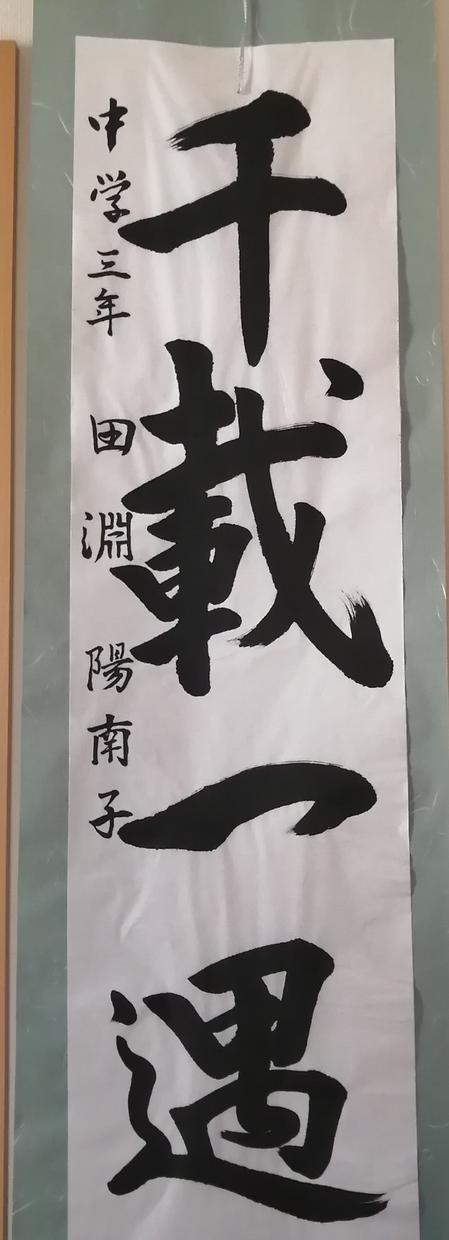 千載一遇
中学三年 田淵陽南子